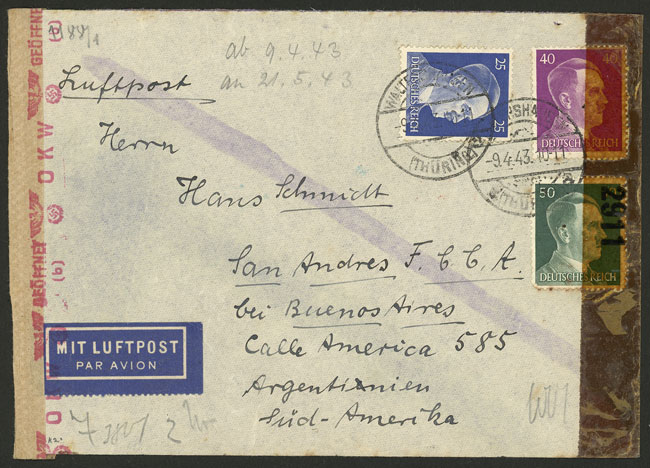 1188/1
GEÖFFNET
(b)
OKW
GEÖFFNET
(b)
ab 9.4.43
an 21.5.43
Luftpost
25
25
DEUTSCHES REICH
40
40
DEUTSCHES REICH
-9.4.43.10-11
50
DEUTSCHES REICH
2911
Herrn
Hans Schmidt
San Andres F.C.C.A.
bei Buenos Aires
Calle America 585
Argentinien
Süd-Amerika
MIT LUFTPOST
PAR AVION